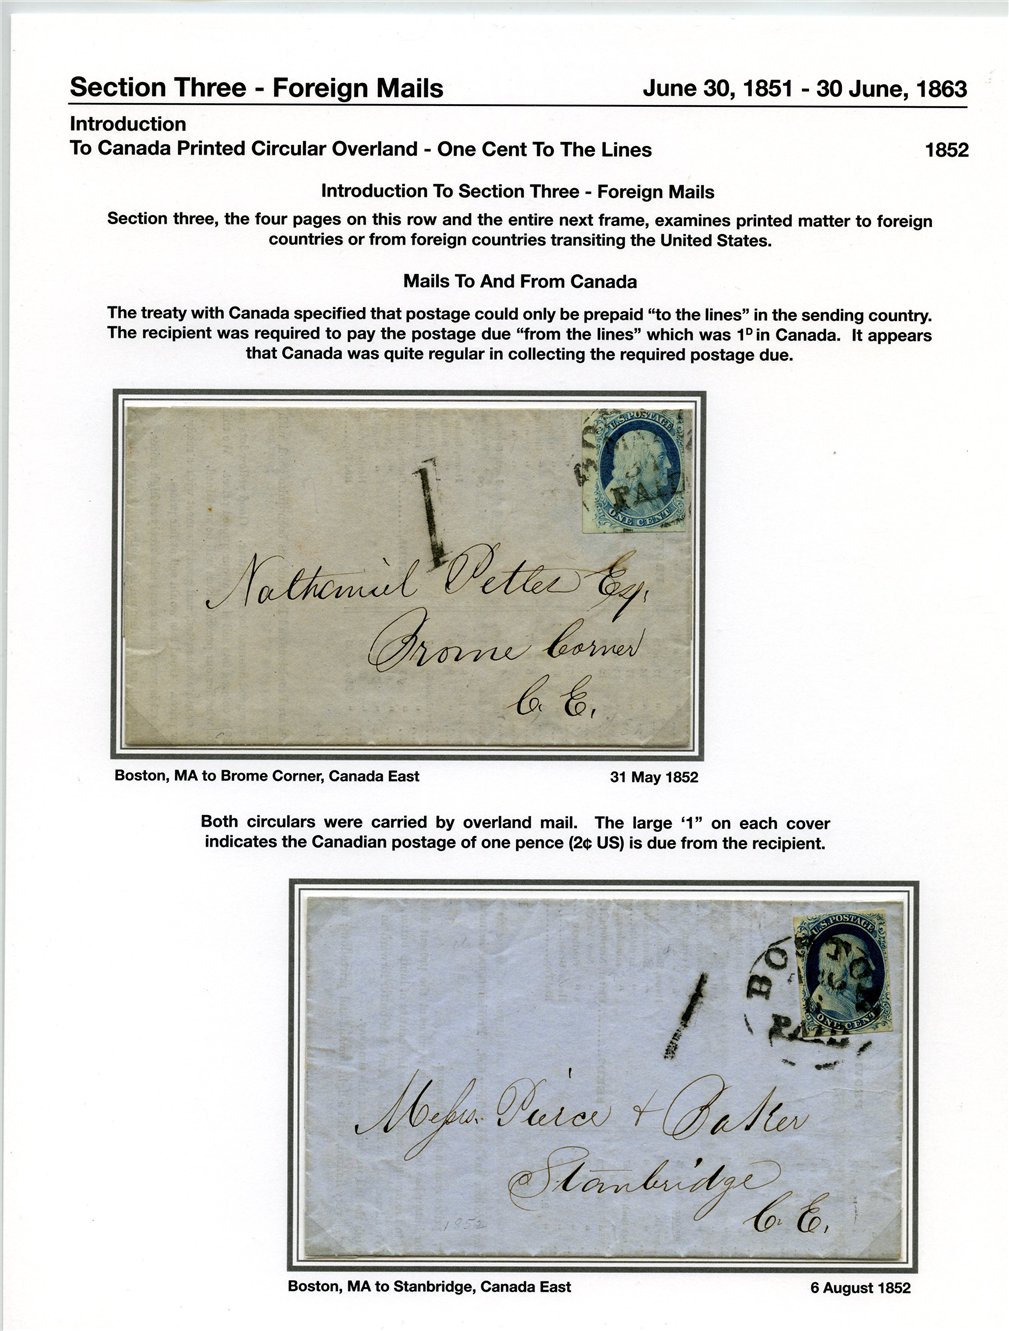 Section Three - Foreign Mails
June 30, 1851 - 30 June, 1863
Introduction
To Canada Printed Circular Overland - One Cent To The Lines
1852
Introduction To Section Three - Foreign Mails
Section three, the four pages on this row and the entire next frame, examines printed matter to foreign
countries or from foreign countries transiting the United States.
Mails To And From Canada
The treaty with Canada specified that postage could only be prepaid “to the lines” in the sending country.
The recipient was required to pay the postage due “from the lines” which was 1ᴰ in Canada. It appears
that Canada was quite regular in collecting the required postage due.
U.S. POSTAGE
PAID
ONE CENT
1
Nathaniel Pettes Esq.
Brome Corner
C. E.
Boston, MA to Brome Corner, Canada East
31 May 1852
Both circulars were carried by overland mail. The large ‘1” on each cover
indicates the Canadian postage of one pence (2¢ US) is due from the recipient.
U.S. POSTAGE
BOSTON
PAID
ONE CENT
1
Messrs. Pierce & Baker
Stanbridge
C. E.
1852
Boston, MA to Stanbridge, Canada East
6 August 1852